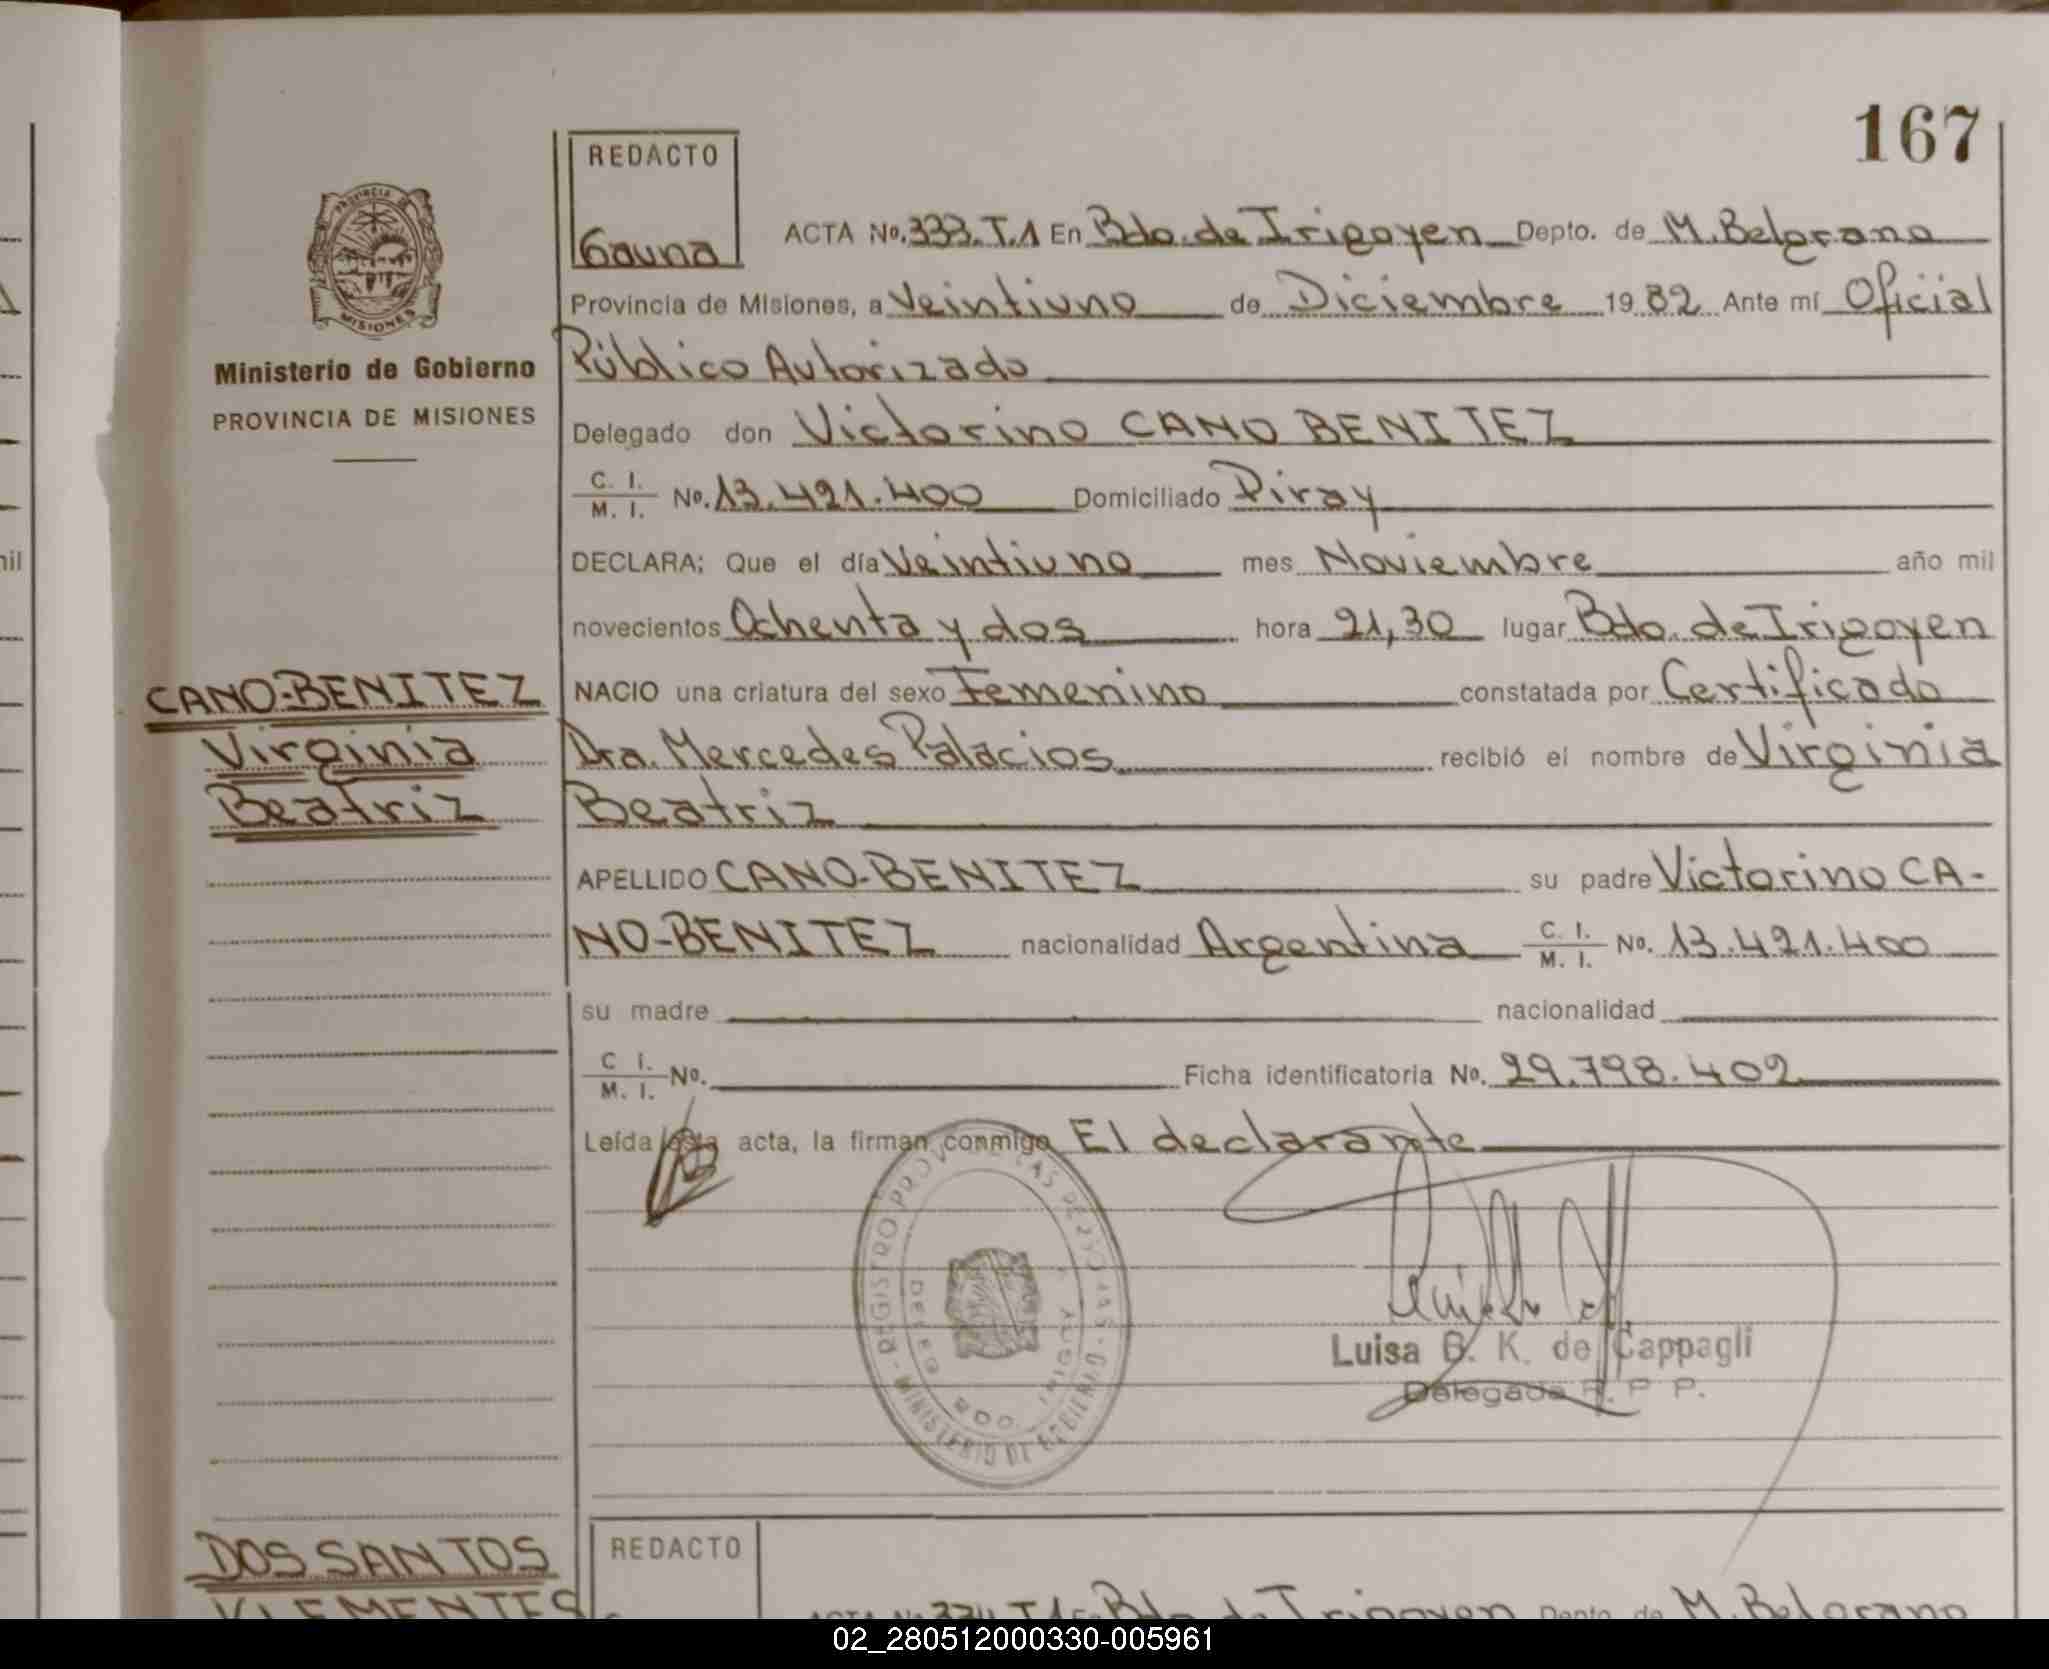 167
REDACTO
Gauna
PROVINCIA DE
MISIONES
Ministerio de Gobierno
PROVINCIA DE MISIONES
ACTA No. 333.T.1 En Bdo. de Irigoyen Depto. de M. Belgrano
Provincia de Misiones, a Veintiuno de Diciembre 19 82 Ante mí Oficial
Público Autorizado
Delegado don Victorino CANO BENITEZ
C. I. / M. I. No. 13.421.400 Domiciliado Piray
DECLARA; Que el día Veintiuno mes Noviembre año mil
novecientos Ochenta y dos hora 21,30 lugar Bdo. de Irigoyen
CANO-BENITEZ
Virginia
Beatriz
NACIO una criatura del sexo Femenino constatada por Certificado
Dra. Mercedes Palacios recibió el nombre de Virginia
Beatriz
APELLIDO CANO-BENITEZ su padre Victorino CA-
NO-BENITEZ nacionalidad Argentina C. I. / M. I. No. 13.421.400
su madre nacionalidad
C I. / M. I. No. Ficha identificatoria No. 29.798.402
Leída esta acta, la firman conmigo El declarante
Luisa B. K. de Cappagli
Delegada R. P. P.
DOS SANTOS
KLEMENTES
REDACTO
ACTA No. 334.T.1 En Bdo. de Irigoyen Depto. de M. Belgrano
mil
02_280512000330-005961